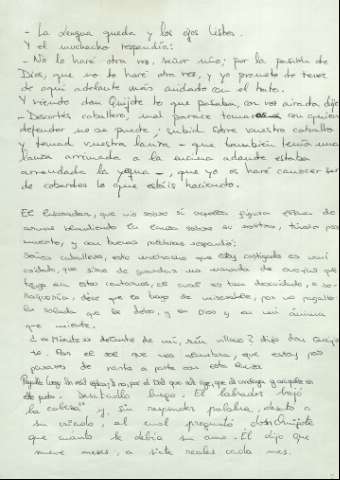 - La lengua queda y los ojos listos.
Y el muchacho respondía:
- No lo haré otra vez, señor mío; por la pasión de
Dios, que no lo haré otra vez, y yo prometo de tener
de aquí adelante más cuidado con el hato.
Y viendo don Quijote lo que pasaba, con voz airada dijo
- Descortés caballero, mal parece tomaros con quien
defender no se puede; subid sobre vuestro caballo
y tomad vuestra lanza - que también tenía una
lanza arrimada a la encina adonde estaba
arrendada la yegua -, que yo os haré conocer ser
de cobardes lo que estáis haciendo.
El labrador, que vio sobre sí aquella figura llena de
armas blandiendo la lanza sobre su rostro, túvose por
muerto, y con buenas palabras respondió:
Señor caballero, este muchacho que estoy castigando es un mi
criado, que sirve de guardar una manada de ovejas que
tengo en estos contornos, el cual es tan descuidado, o
bellaquería, dice que lo hago de miserable, por no pagalle
la soldada que le debo, y en Dios y en mi ánima
que miente.
¿"Miente" delante de mí, ruin villano? dijo don Quijo
te. Por el sol que nos alumbra, que estoy por
pasaros de parte a parte con esta lanza
Pagadle luego sin más réplica; si no, por el Dios que nos rige, que os concluya y aniquile en
este punto. Desatadlo luego. El labrador bajó
la cabeza y, sin responder palabra, desató a
su criado, al cual preguntó don Quijote
que cuánto le debía su amo. Él dijo que
nueve meses, a siete reales cada mes.